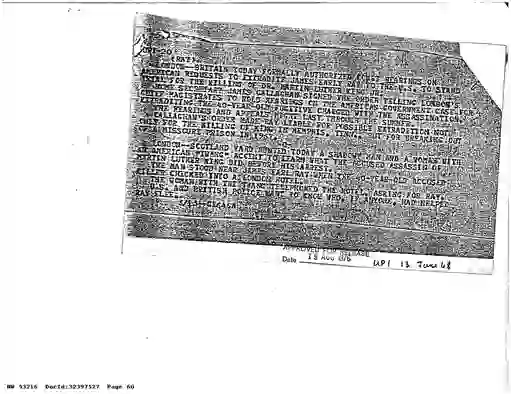 UPI-20
(RAY)
LONDON--BRITAIN TODAY FORMALLY AUTHORIZED COURT HEARINGS ON
AMERICAN REQUESTS TO EXTRADITE JAMES EARL RAY TO THE U.S. TO STAND
TRIAL FOR THE KILLING OF DR. MARTIN LUTHER KING JR.
HOME SECRETARY JAMES CALLAGHAN SIGNED THE ORDER TELLING LONDON'S
CHIEF MAGISTRATES TO HOLD HEARINGS ON THE AMERICAN GOVERNMENT CASE FOR
EXTRADITING THE 40-YEAR-OLD FUGITIVE CHARGED WITH THE ASSASSINATION.
THE HEARINGS AND APPEALS MAY LAST THROUGHOUT SUMMER.
CALLAGHAN'S ORDER MADE RAY LIABLE FOR POSSIBLE EXTRADITION NOT
ONLY FOR THE KILLING OF KING IN MEMPHIS, TENN., BUT FOR BREAKING OUT
OF A MISSOURI PRISON IN 1967.
LONDON--SCOTLAND YARD HUNTED TODAY A SHADOWY MAN AND A WOMAN WITH
AN AMERICAN TWANG ACCENT TO LEARN WHAT THE ACCUSED ASSASSIN OF
MARTIN LUTHER KING DID BEFORE HIS ARREST.
THE MAN STOOD NEAR JAMES EARL RAY WHEN THE 40-YEAR-OLD ACCUSED
KILLER CHECKED INTO A LONDON HOTEL
THE WOMAN WITH THE TWANG TELEPHONED THE HOTEL, ASKING FOR RAY.
U.S. AND BRITISH POLICE WANT TO KNOW WHO, IF ANYONE, HAD HELPED
RAY FLEE.
APPROVED FOR RELEASE
Date 18 AUG 1976 UPI 13 June 68
NW 53216 DocId:32397527 Page 60